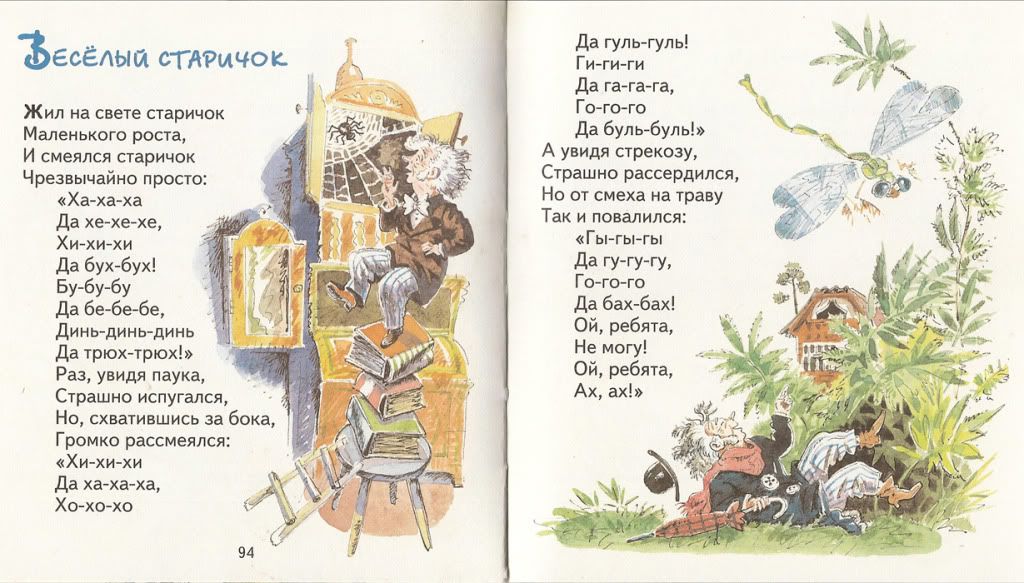 Весёлый старичок
Жил на свете старичок
Маленького роста,
И смеялся старичок
Чрезвычайно просто:
«Ха-ха-ха
Да хе-хе-хе,
Хи-хи-хи
Да бух-бух!
Бу-бу-бу
Да бе-бе-бе,
Динь-динь-динь
Да трюх-трюх!»
Раз, увидя паука,
Страшно испугался,
Но, схватившись за бока,
Громко рассмеялся:
«Хи-хи-хи
Да ха-ха-ха,
Хо-хо-хо
94
Да гуль-гуль!
Ги-ги-ги
Да га-га-га,
Го-го-го
Да буль-буль!»
А увидя стрекозу,
Страшно рассердился,
Но от смеха на траву
Так и повалился:
«Гы-гы-гы
Да гу-гу-гу,
Го-го-го
Да бах-бах!
Ой, ребята,
Не могу!
Ой, ребята,
Ах, ах!»